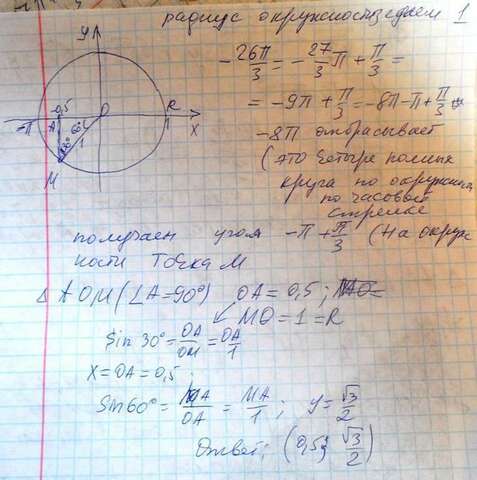 радиус окружности задаем 1
y
-26π/3 = -27/3 π + π/3 =
= -9π + π/3 = -8π - π + π/3
-8π отбрасывает
(это четыре полных
круга по окружност
по часовой
стрелке
-0,5
-π A 60° O R
30° 1 1 X
M
получаем угол -π + π/3 (на окруж
ности точка M
Δ AOM (∠A=90°) OA = 0,5;
MO = 1 = R
Sin 30° = OA/OM = OA/1
X = OA = 0,5;
Sin 60° = MA/OA = MA/1; y = √3/2
Ответ: (0,5; √3/2)